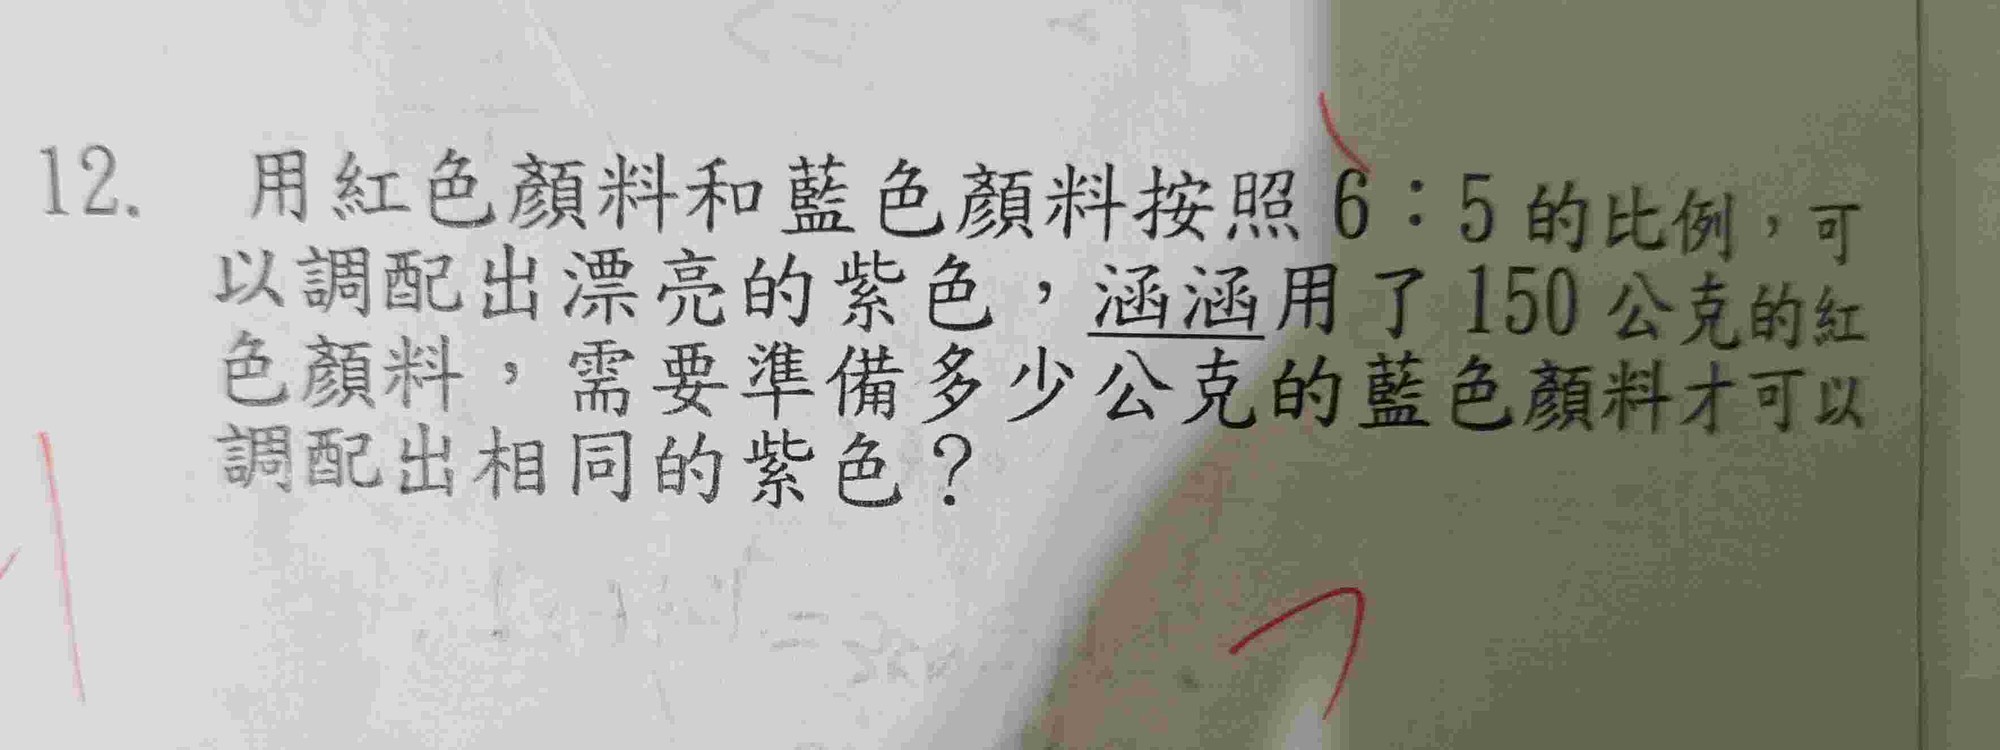 12. 用紅色顏料和藍色顏料按照 6：5 的比例，可
以調配出漂亮的紫色，涵涵用了 150 公克的紅
色顏料，需要準備多少公克的藍色顏料才可以
調配出相同的紫色？